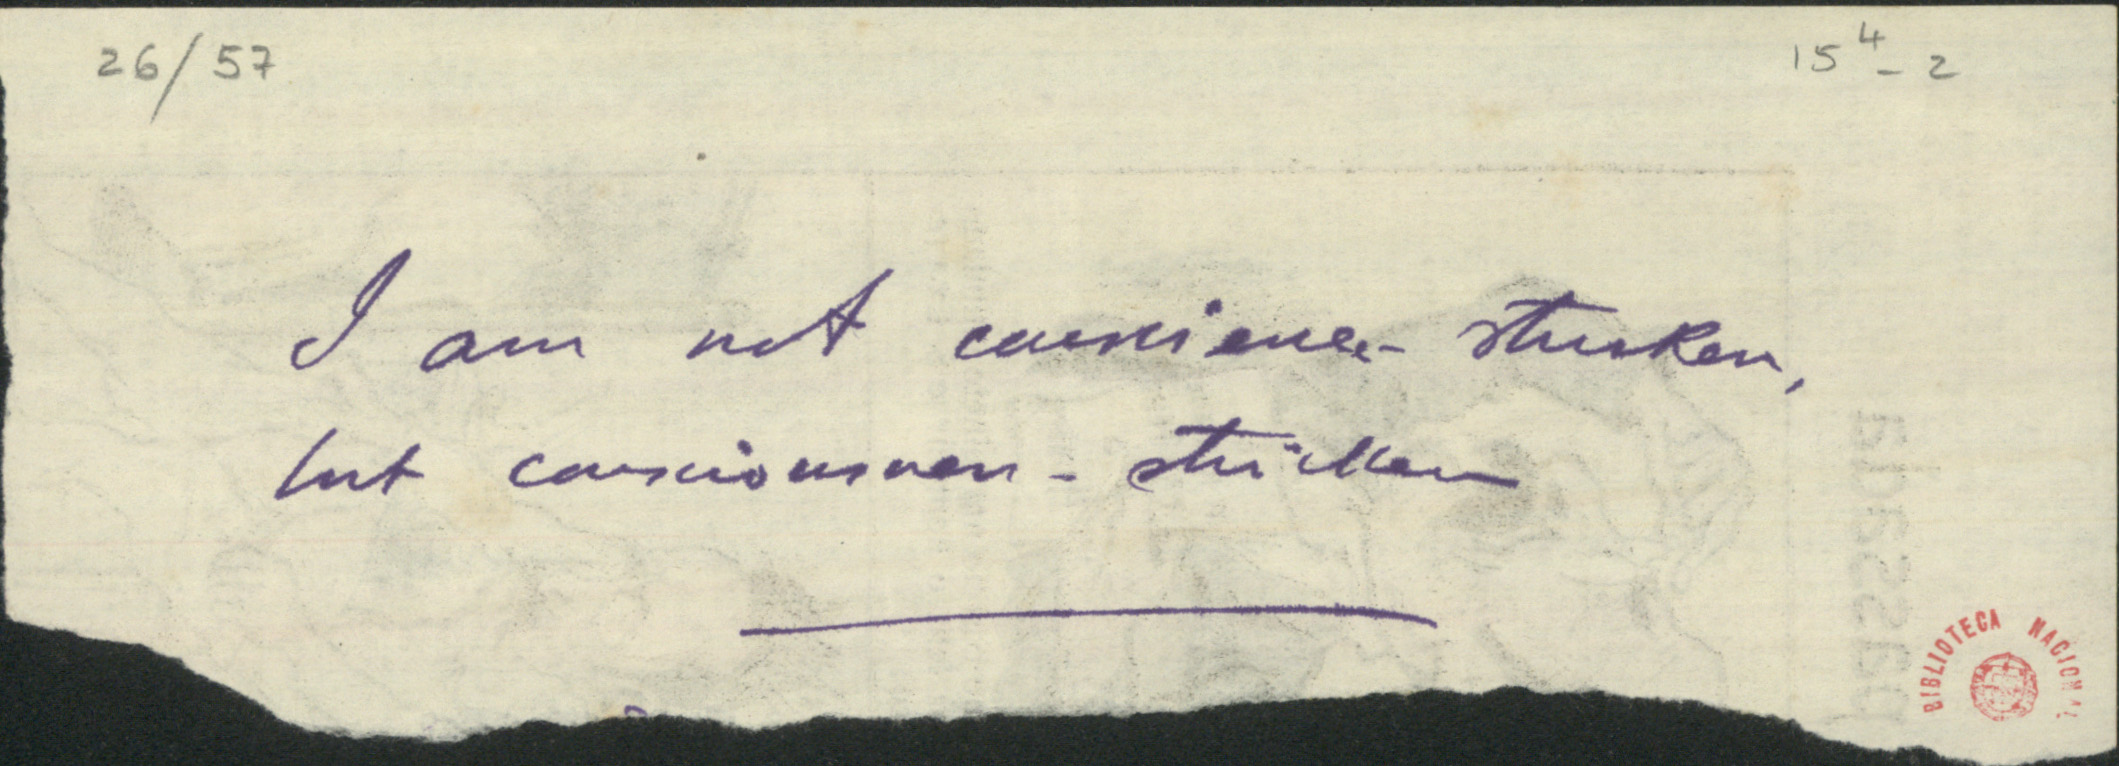 26/57
15⁴-2
I am not conscience-stricken,
but consciousness-stricken
BIBLIOTECA NACIONAL